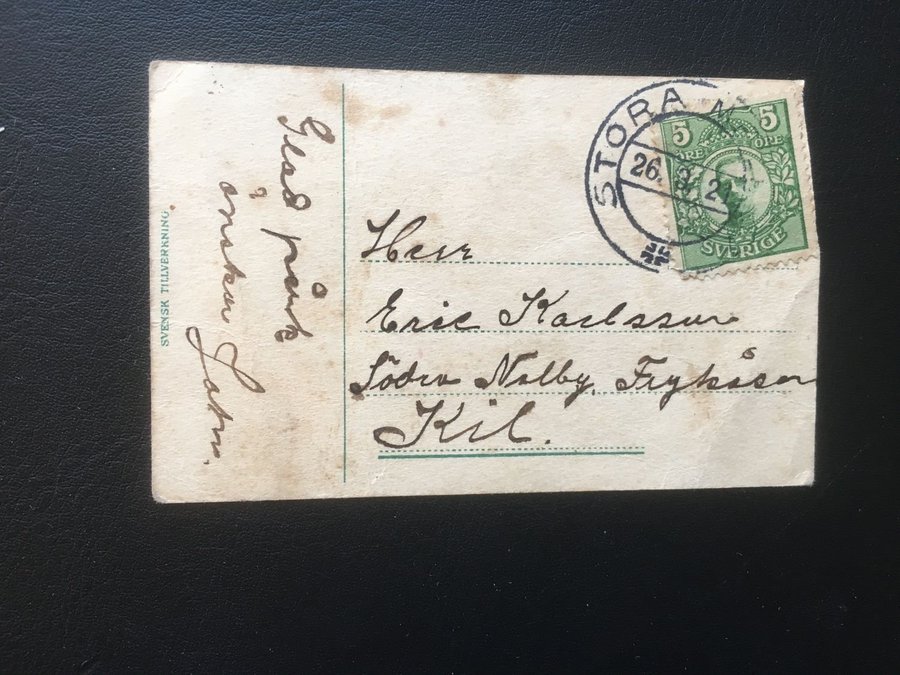 Glad påsk
önskar
SVENSK TILLVERKNING
STORA M
26. 3. 2
5 5
ÖRE ÖRE
SVERIGE
Herr
Eric Karlsson
Södra Nolby, Frykåsen
Kil.